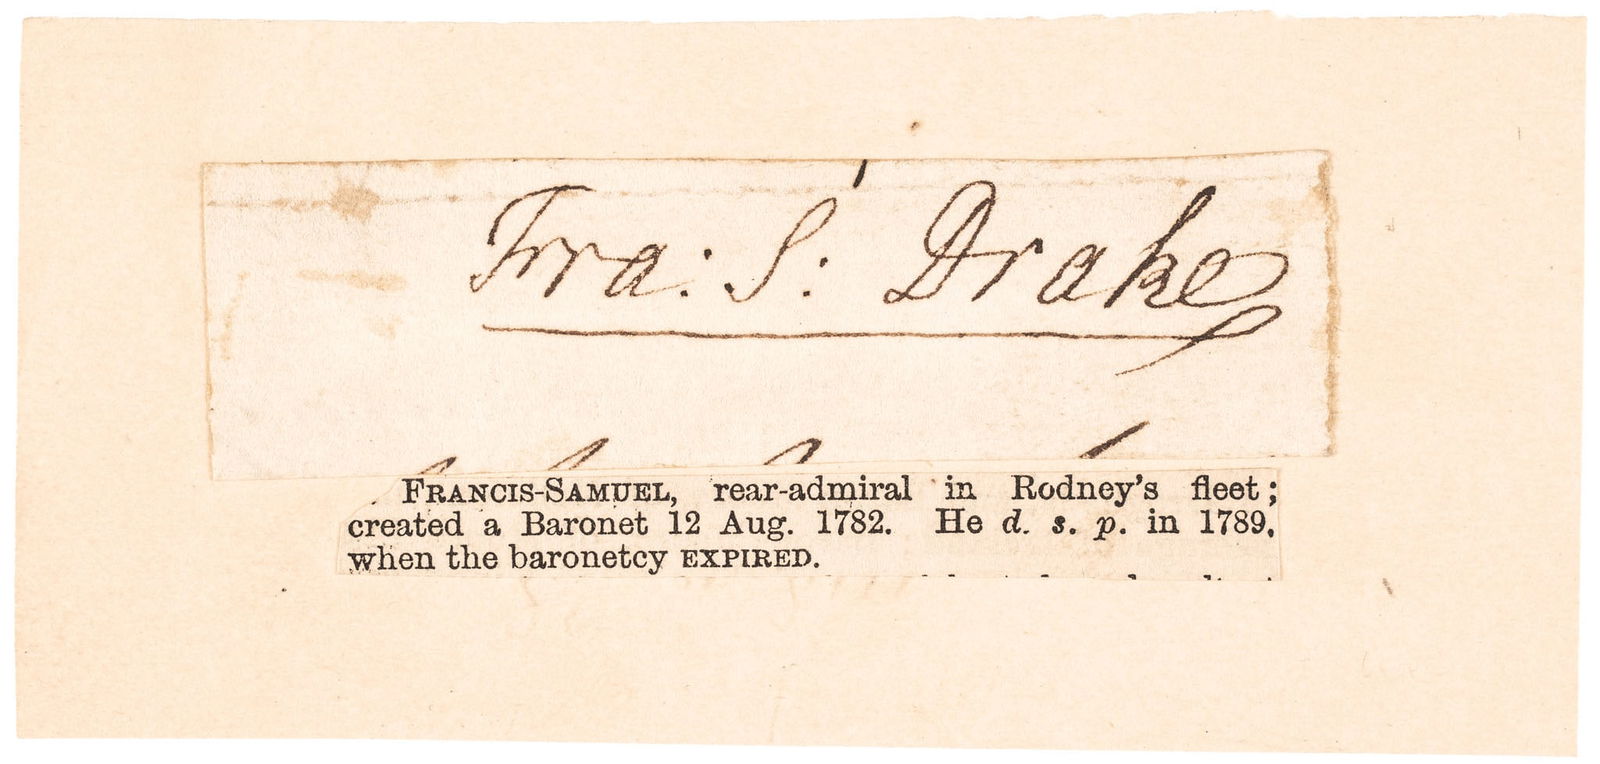 Fra: S: Drake
FRANCIS-SAMUEL, rear-admiral in Rodney's fleet;
created a Baronet 12 Aug. 1782. He d. s. p. in 1789,
when the baronetcy EXPIRED.